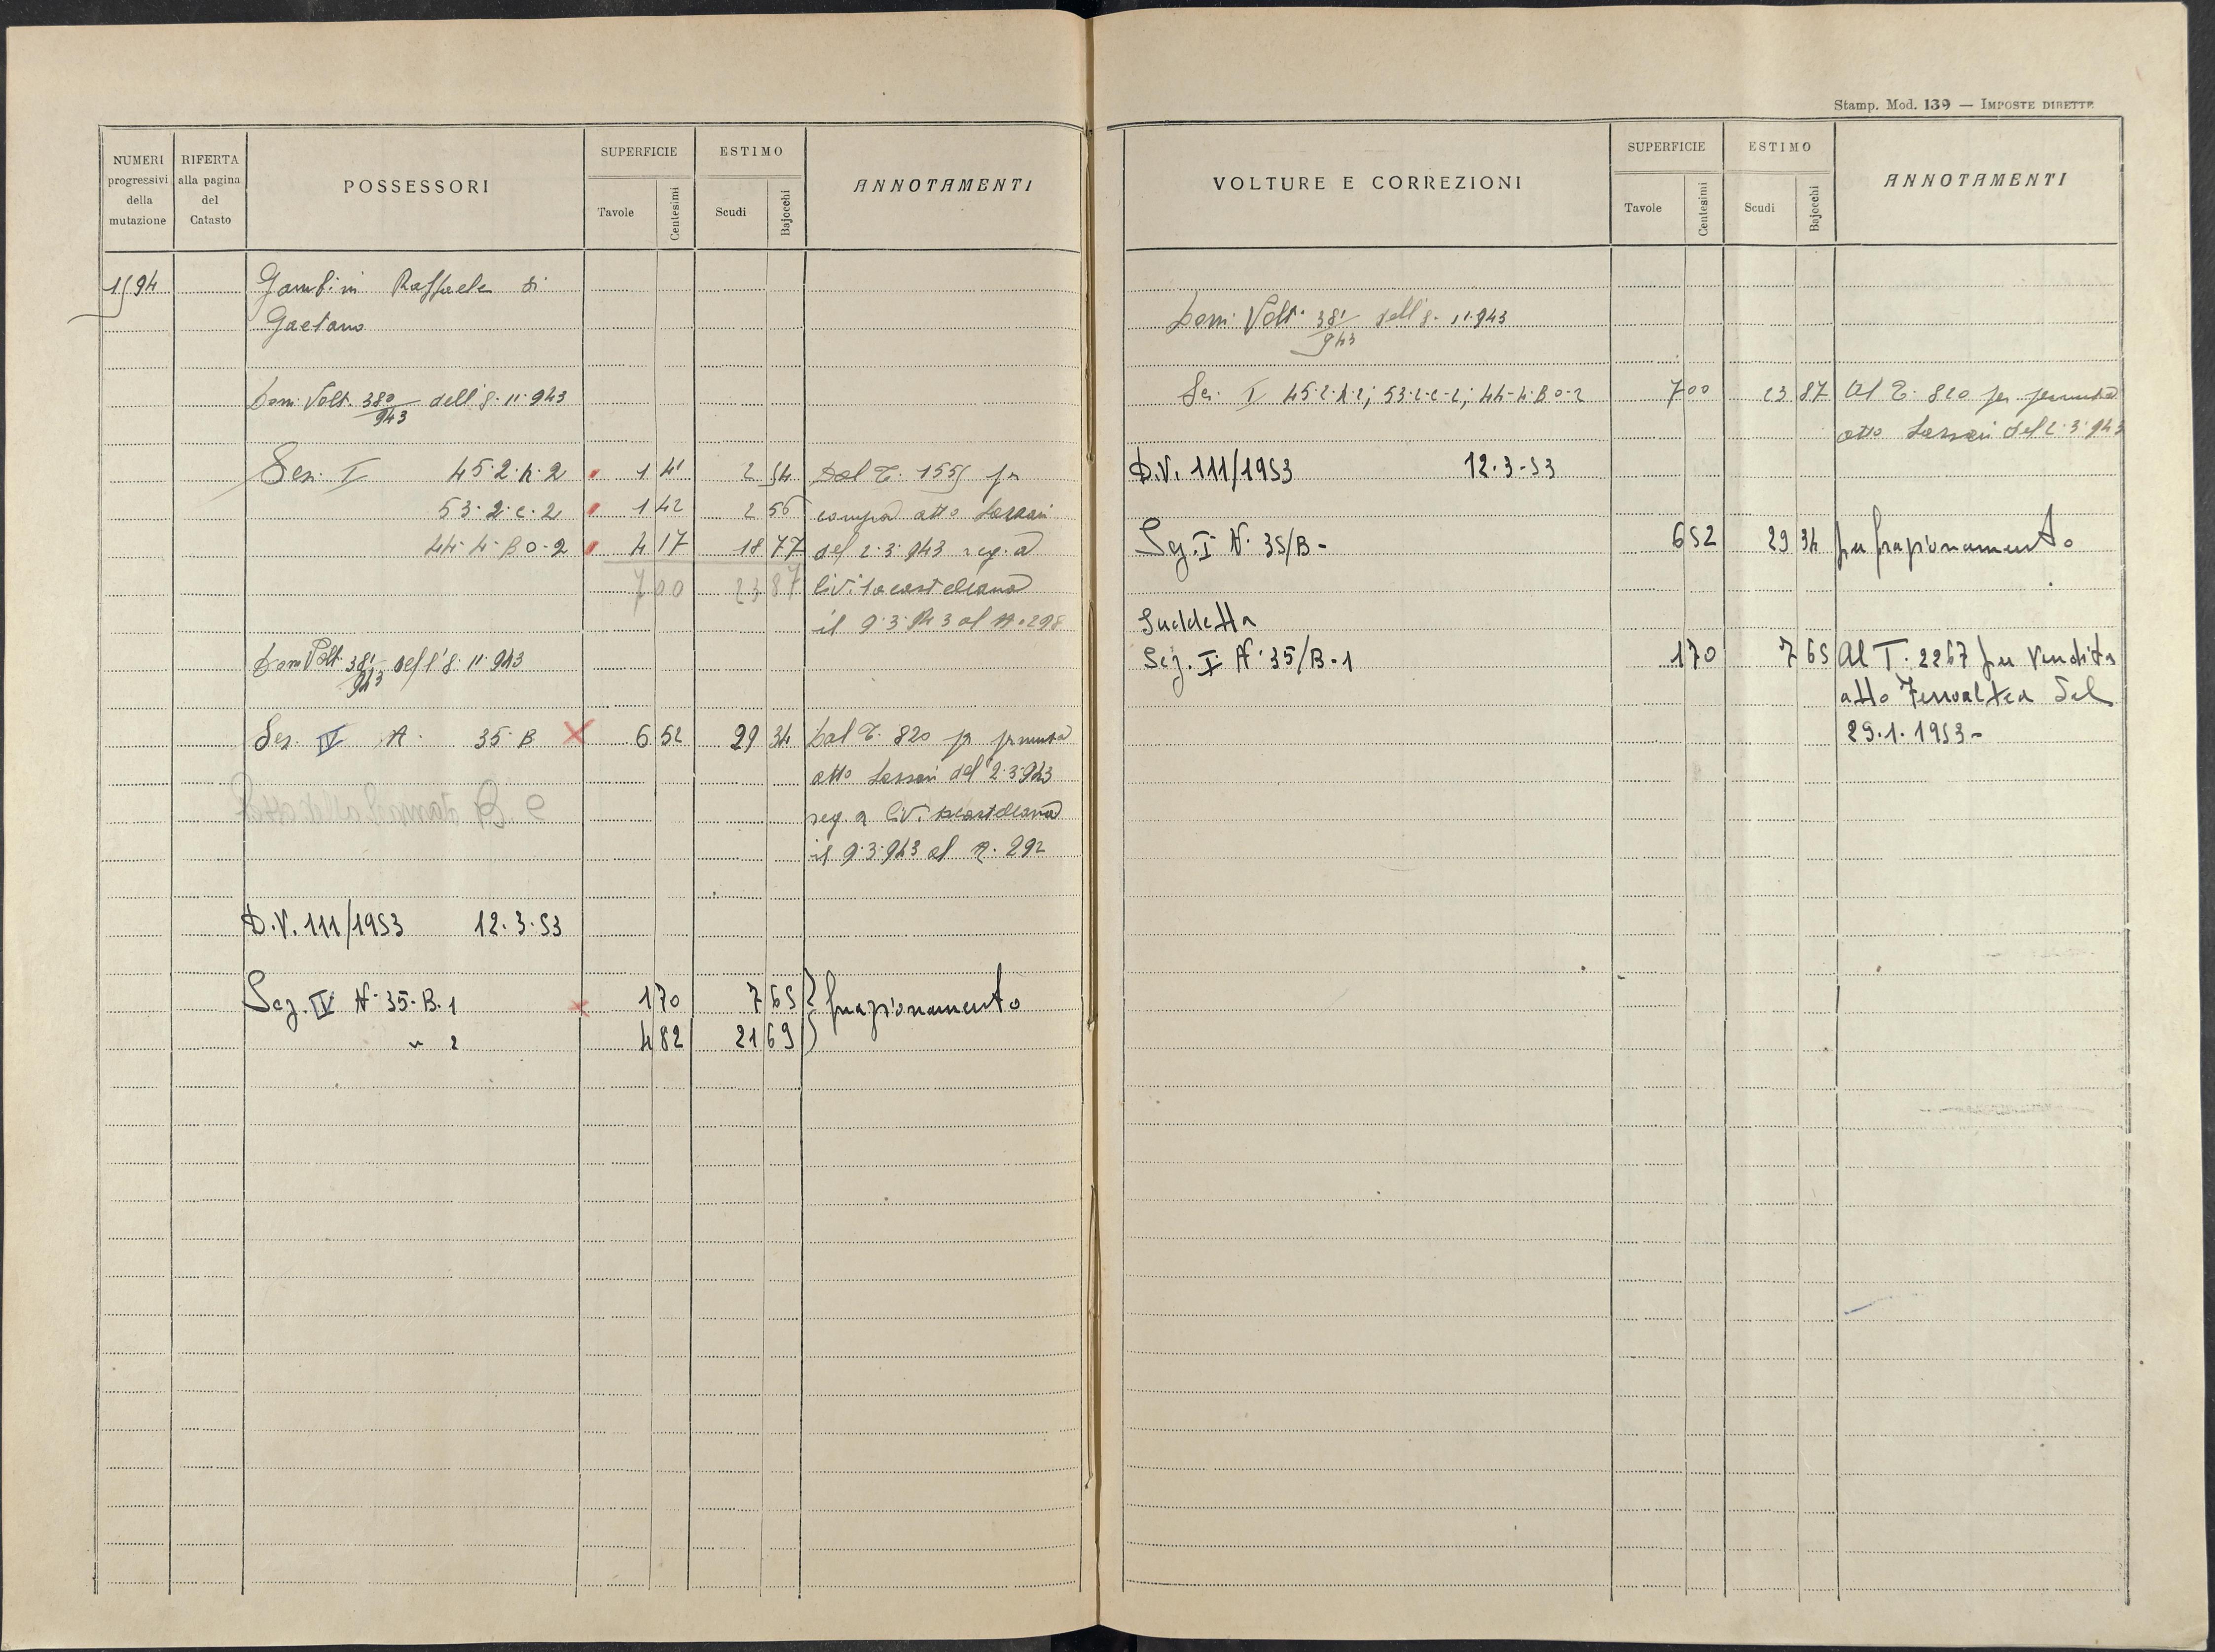 Stamp. Mod. 139 — IMPOSTE DIRETTE
NUMERI progressivi della mutazione
RIFERTA alla pagina del Catasto
POSSESSORI
SUPERFICIE
Tavole Centesimi
ESTIMO
Scudi Bajocchi
ANNOTAMENTI
1594 Gambini Raffaele di
Gaetano
Dom. Volt. 380/943 dell'8.11.943
Sez. I 45.2.A.2 1 41 2 54 Dal T. 1555 per
53.2.C.2 1 42 2 56 compra atto Lazzari
44.4.BO.2 4 17 18 77 del 2.3.943 reg. a
7 00 23 87 Civitacastellana
il 9.3.943 al N. 298
Dom. Volt. 381/943 dell'8.11.943
Sez. IV N. 35.B 6 52 29 34 Dal T. 820 p permuta
atto Lazzari del 2.3.943
reg. a Civitacastellana
il 9.3.943 al N. 292
D.V. 111/1953 12.3.53
Sez. IV N. 35.B.1 1 70 7 65 frazionamento
" 2 4 82 21 69
VOLTURE E CORREZIONI
SUPERFICIE
Tavole Centesimi
ESTIMO
Scudi Bajocchi
ANNOTAMENTI
Dom. Volt. 381/943 dell'8.11.943
Sez. I 45.2.A.2; 53.2.C.2; 44-4.BO.2 7 00 23 87 Al T. 820 per permuta
atto Lazzari del 2.3.943
D.V. 111/1953 12.3-53
Sez. I N. 35/B - 6 52 29 34 per frazionamento
Suddetta
Sez. I N. 35/B.1 1 70 7 65 Al T. 2267 per vendita
atto del
29.1.1953-